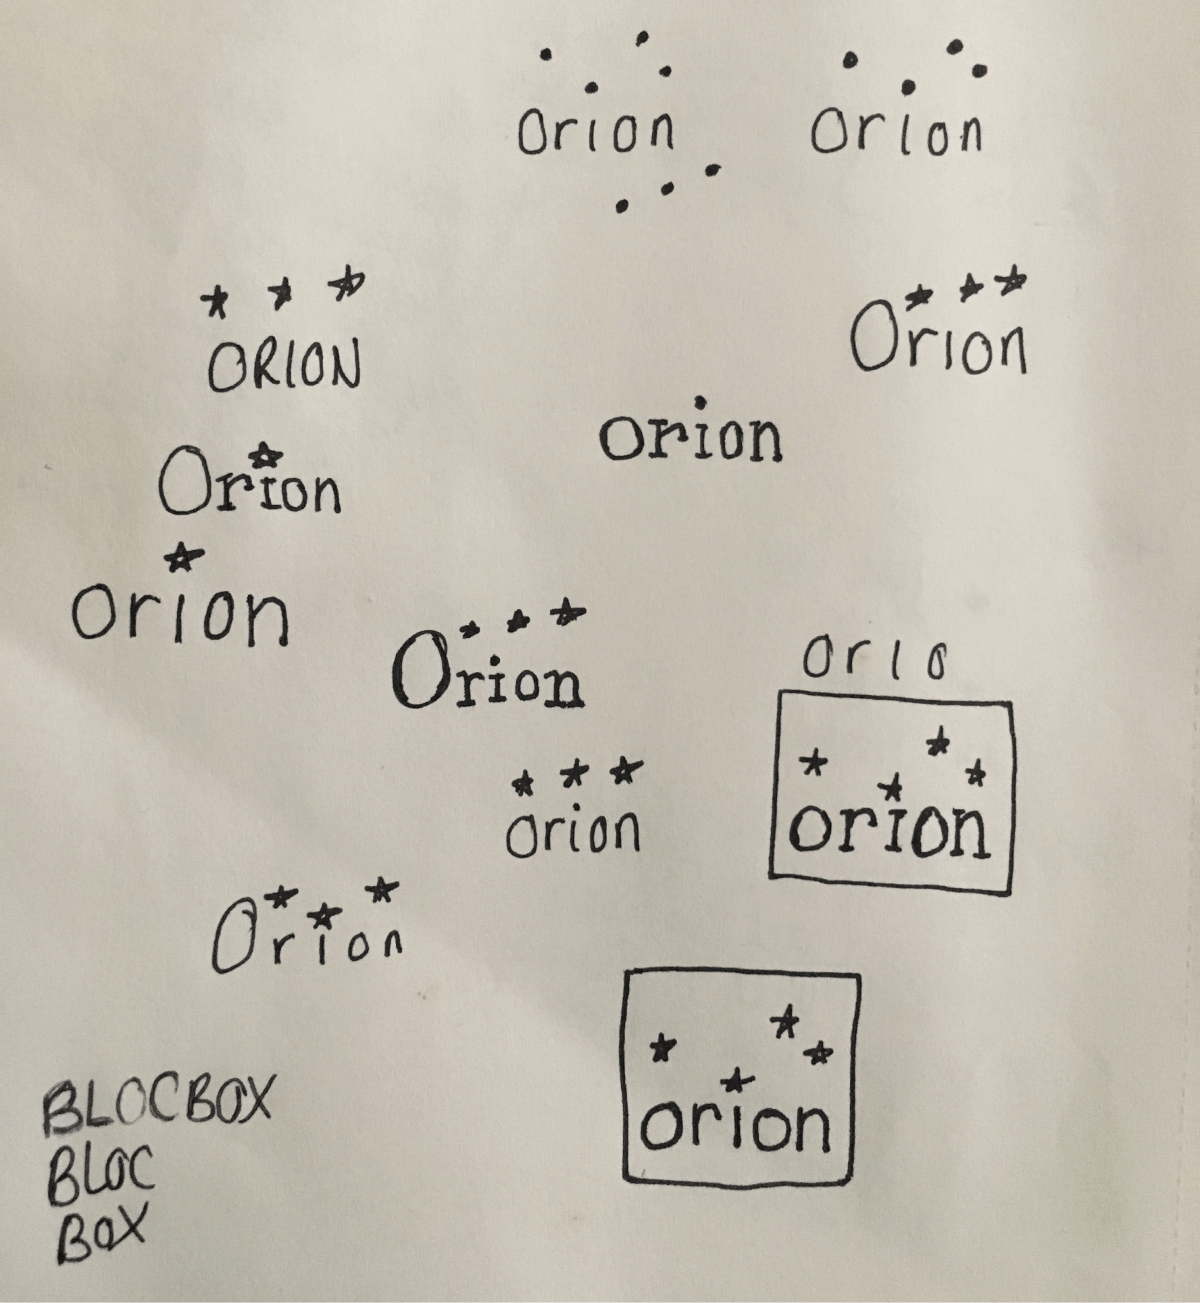 Orion
Orion
ORION
Orion
orion
Orion
orion
Orion
orio
orion
orion
Orion
BLOCBOX
orion
BLOC
BOX